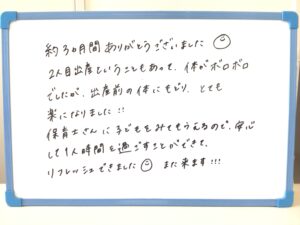 約3ヵ月間ありがとうございました
2人目出産ということもあって、体がボロボロ
でしたが、出産前の体にもどり、とても
楽になりました!!
保育士さんに子どもをみてもらえるので、安心
して1人時間を過ごすことができて、
リフレッシュできました また来ます!!!